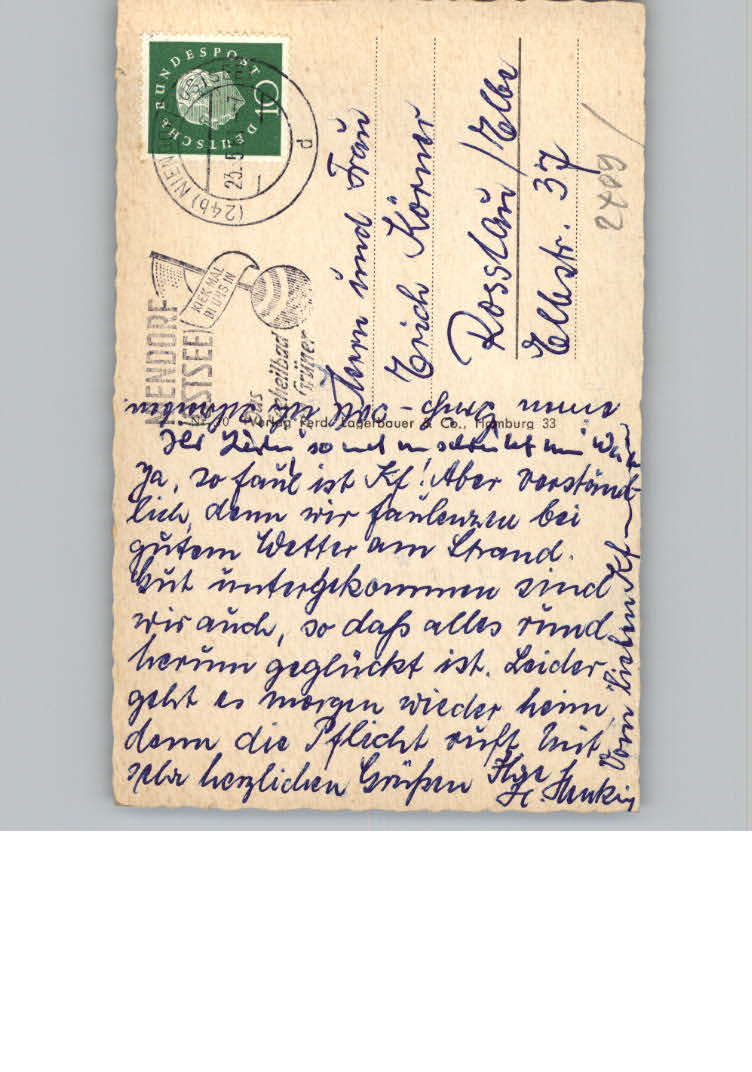 DEUTSCHE BUNDESPOST
10
(24b) NIENDORF
23. 5
d
NIENDORF
(OSTSEE)
KIEK MAL
BI UNS IN
Das
Heilbad
im Grünen
Herrn und Frau
Erich Körner
Rosslau/Elbe
Elbstr. 37
2409
Verlag Ferd. Lagerbauer & Co., Hamburg 33
Ihr Lieben, so
Ja, so faul ist Kf! Aber verständ-
lich, denn wir faulenzen bei
gutem Wetter am Strand.
Gut untergekommen sind
wir auch, so daß alles rund
herum geglückt ist. Leider
geht es morgen wieder heim
denn die Pflicht ruft. Mit
sehr herzlichen Grüßen
Vom lieben Kf